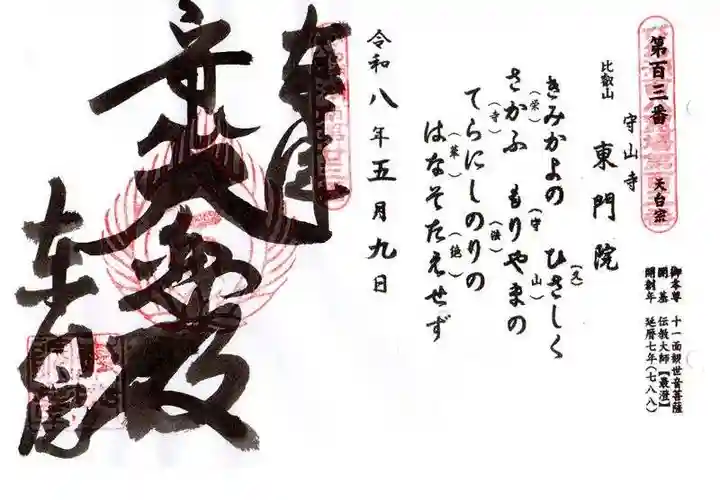 第百三番 天台宗
御本尊 十一面観世音菩薩
開基 伝教大師【最澄】
開創年 延暦七年(七八八)
守山寺
比叡山 東門院
きみかよの ひさしく(久)
さかふ(栄) もりやまの(守)(山)
てらにしのりの(寺)(法)
はなそたえせず(華)(絶)
令和八年五月九日
奉拝
大悲殿
東門院